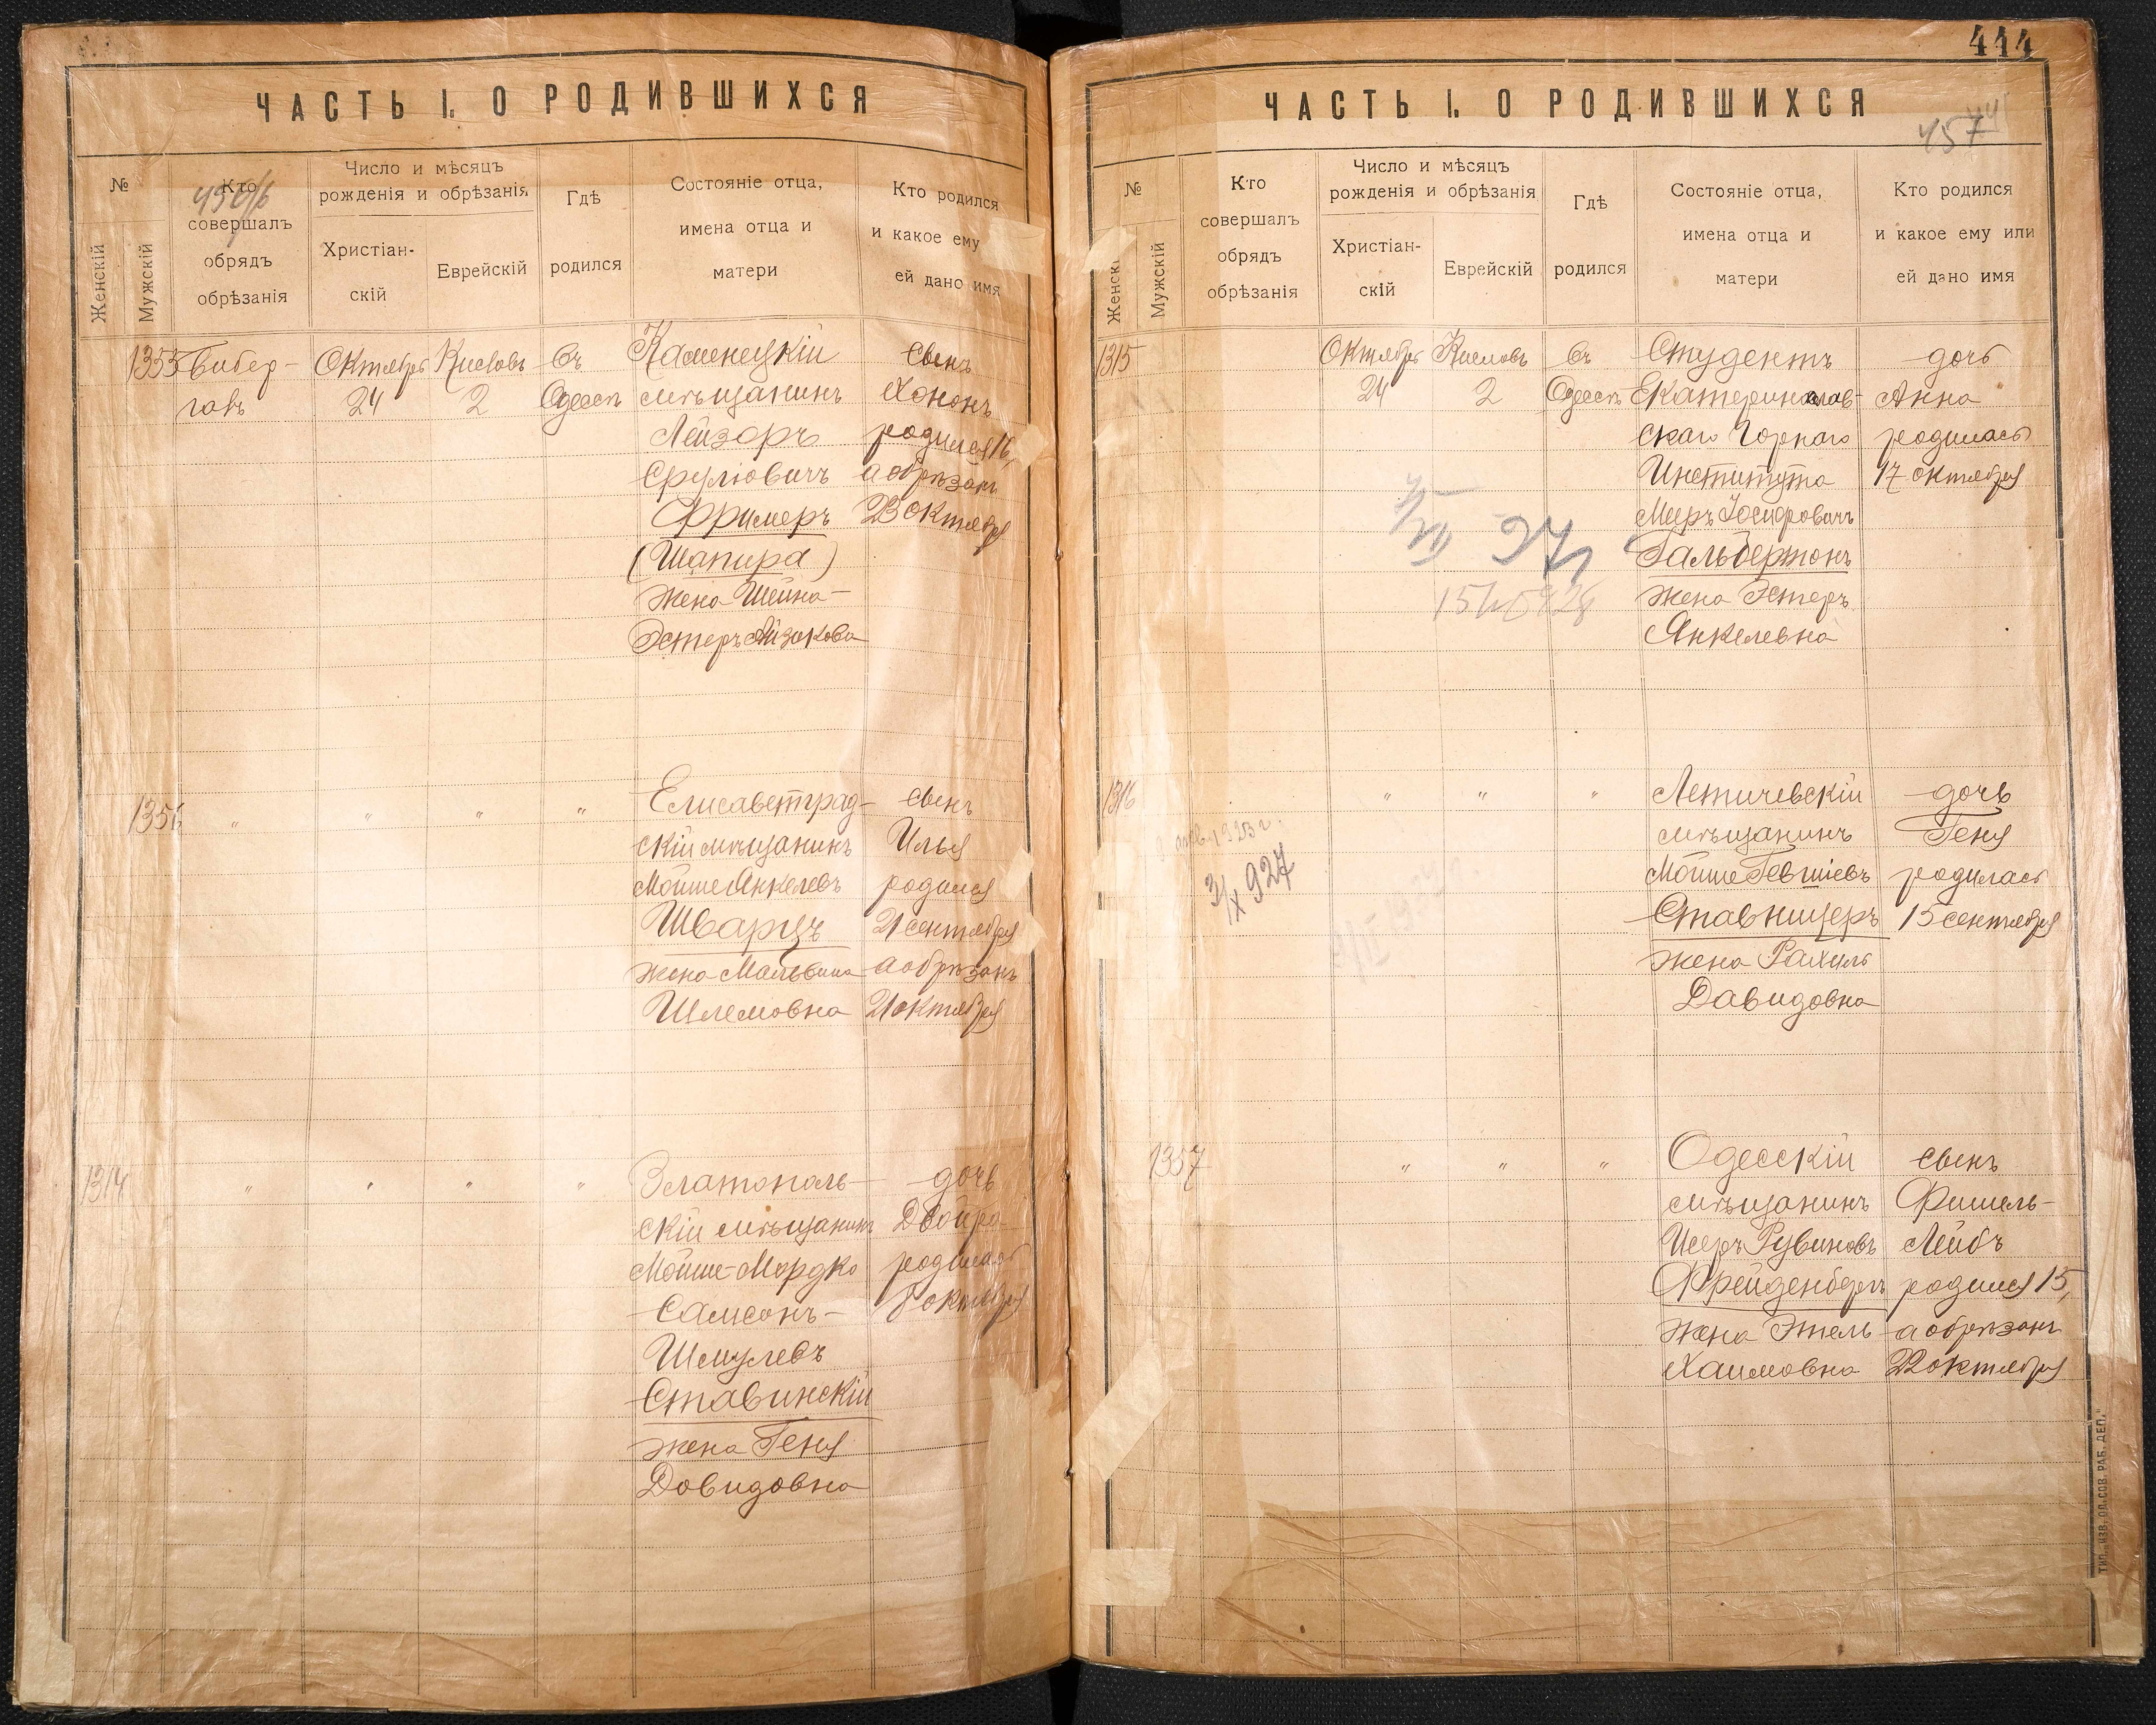 ЧАСТЬ I. О РОДИВШИХСЯ
№
Женскій
Мужскій
Кто
совершалъ
обрядъ
обрѣзанія
Число и мѣсяцъ
рожденія и обрѣзанія
Христіан-
скій
Еврейскій
Гдѣ
родился
Состояніе отца,
имена отца и
матери
Кто родился
и какое ему
ей дано имя
1355
Бибер-
галъ
Октября
24
Кислевъ
2
въ
Одессѣ
Каменецкій
мѣщанинъ
Лейзоръ
Сруліовичъ
Фримеръ
(Шапира)
жена Шейна-
Эстеръ Айзикова
сынъ
Хононъ
родился 16,
а обрѣзанъ
23 октября
1356
"
"
"
"
Елисаветград-
скій мѣщанинъ
Мойше Янкелевъ
Шварцъ
жена Мальвина
Шлемовна
сынъ
Илья
родился
21 сентября
а обрѣзанъ
21 октября
1314
"
"
"
"
Златополь-
скій мѣщанинъ
Мойше-Мордко
Самсонъ-
Шмулевъ
Ставинскій
жена Геня
Довидовна
дочь
Двойра
родилась
8 октября
444
ЧАСТЬ I. О РОДИВШИХСЯ
457
№
Женскі
Мужскій
Кто
совершалъ
обрядъ
обрѣзанія
Число и мѣсяцъ
рожденія и обрѣзанія
Христіан-
скій
Еврейскій
Гдѣ
родился
Состояніе отца,
имена отца и
матери
Кто родился
и какое ему или
ей дано имя
1315
Октября
24
Кислевъ
2
въ
Одессѣ
Студентъ
Екатеринослав-
скаго Горнаго
Института
Меръ Іосифовичъ
Гальбертонъ
жена Эстеръ
Янкелевна
дочь
Анна
родилась
17 октября
1316
"
"
"
3/IX 927
Летичевскій
мѣщанинъ
Мойше Гевшіевъ
Ставницеръ
жена Рахиль
Давидовна
дочь
Геня
родилась
15 сентября
1357
"
"
"
Одесскій
мѣщанинъ
Рувиновъ
Фрейденбергъ
жена Этель
Хаимовна
сынъ
Фишель-
Лейбъ
родился 15,
а обрѣзанъ
22 октября
ТИП. „ИЗВ. ОД. СОВ. РАБ. ДЕП."